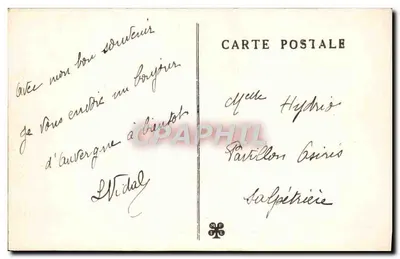 avec mon bon souvenir
Je vous envoie un bonjour
d'auvergne à bientôt
L Vidal
CARTE POSTALE
Melle Hydrio
Pavillon Osiris
Salpétrière
CPAPHIL